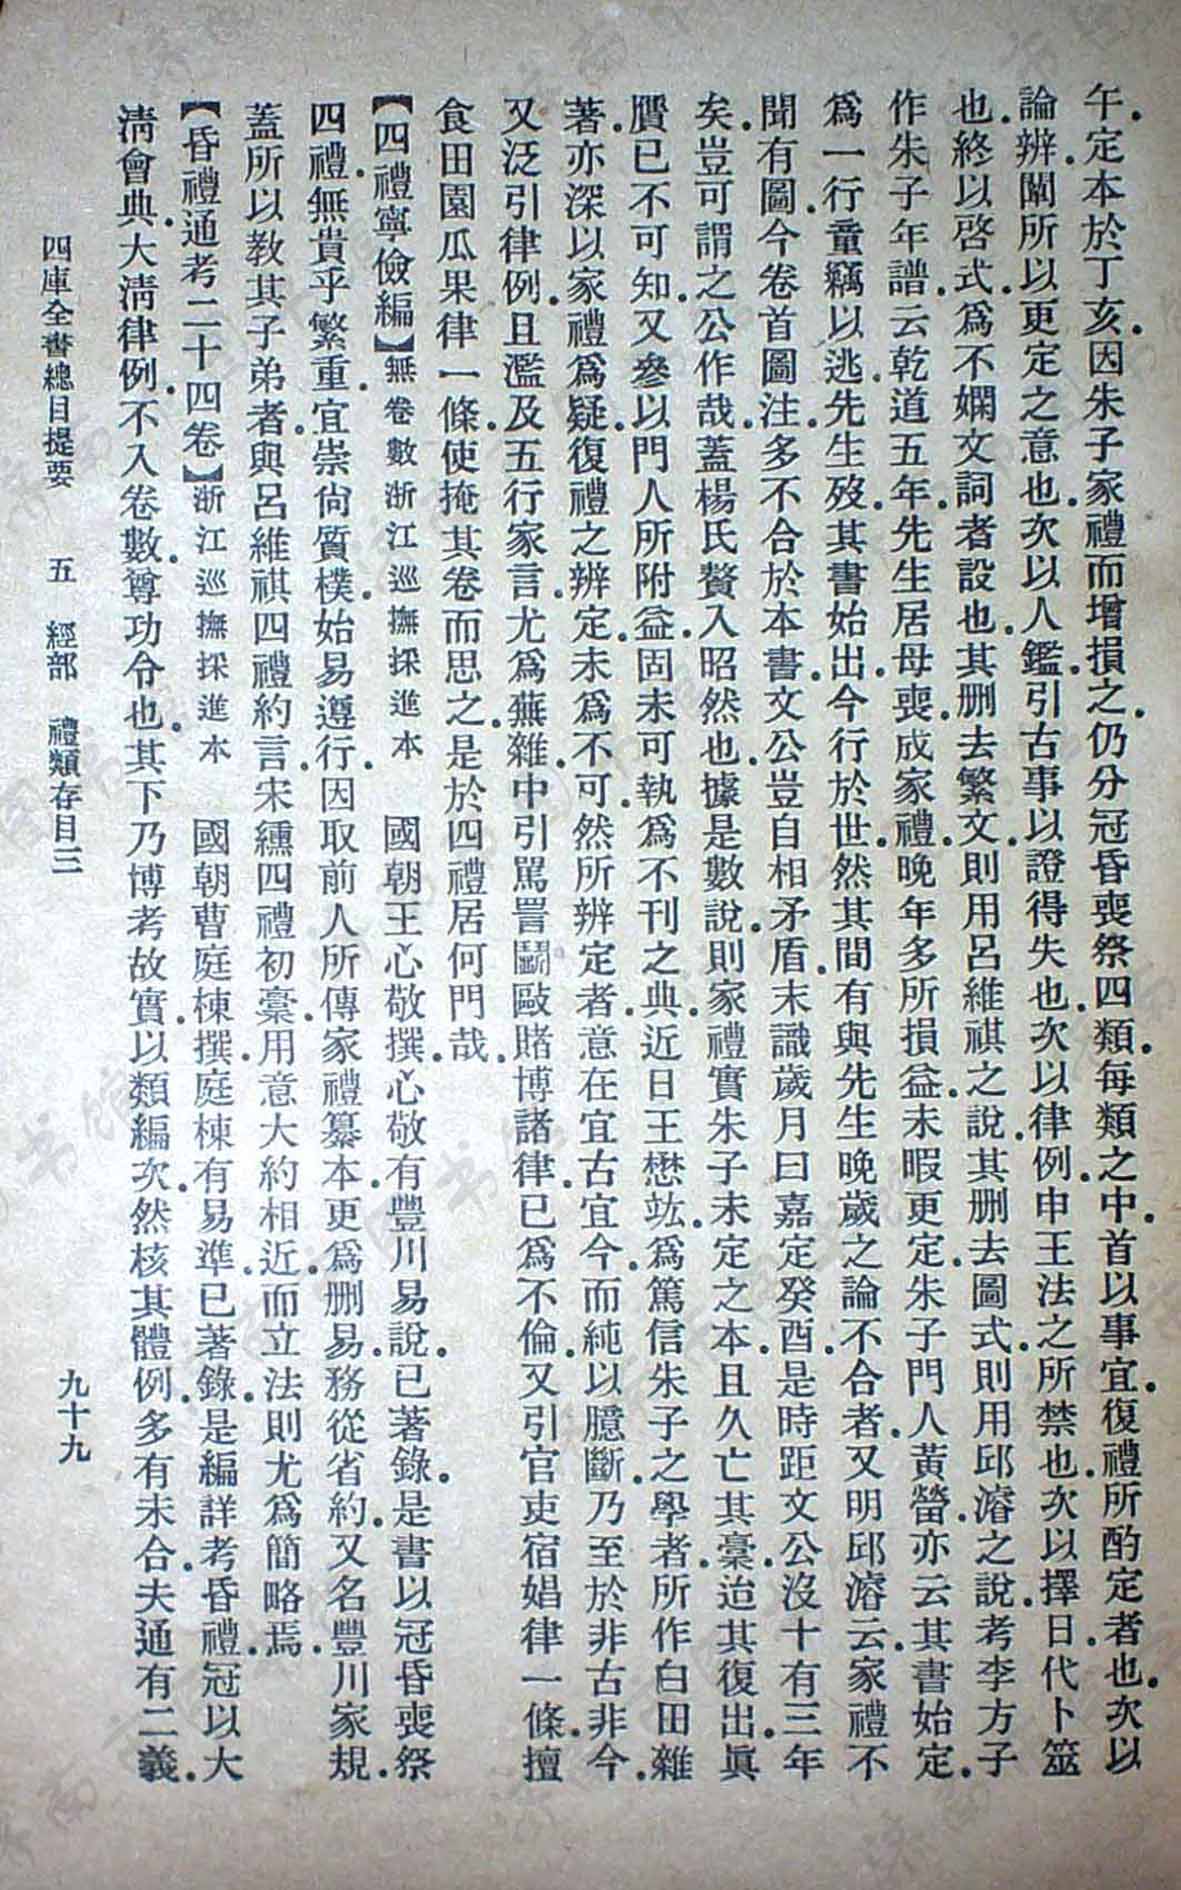 午.定本於丁亥.因朱子家禮而增損之.仍分冠昏喪祭四類.每類之中.首以事宜.復禮所酌定者也.次以
論辨.闡所以更定之意也.次以人鑑.引古事以證得失也.次以律例.申王法之所禁也.次以擇日.代卜筮
也.終以啓式.爲不嫻文詞者設也.其刪去繁文.則用呂維祺之說.其刪去圖式.則用邱濬之說.考李方子
作朱子年譜.云乾道五年.先生居母喪.成家禮.晚年多所損益.未暇更定.朱子門人黃螢亦云.其書始定.
爲一行童竊以逃.先生歿.其書始出.今行於世.然其間有與先生晚歲之論不合者.又明邱濬云.家禮不
聞有圖.今卷首圖注.多不合於本書.文公豈自相矛盾.末識歲月曰嘉定癸酉.是時距文公沒十有三年
矣.豈可謂之公作哉.蓋楊氏贅入昭然也.據是數說.則家禮實朱子未定之本.且久亡其槀.迨其復出.眞
贋已不可知.又參以門人所附益.固未可執爲不刊之典.近日王懋竑.爲篤信朱子之學者.所作白田雜
著.亦深以家禮爲疑.復禮之辨定.未爲不可.然所辨定者.意在宜古宜今.而純以臆斷.乃至於非古非今.
又泛引律例.且濫及五行家言.尤爲蕪雜.中引罵詈鬭毆賭博諸律.已爲不倫.又引官吏宿娼律一條.擅
食田園瓜果律一條.使掩其卷而思之.是於四禮居何門哉.
【四禮寧儉編】無卷數浙江巡撫採進本 國朝王心敬撰.心敬有豐川易說.已著錄.是書以冠昏喪祭
四禮.無貴乎繁重.宜崇尙質樸.始易遵行.因取前人所傳家禮纂本.更爲刪易.務從省約.又名豐川家規.
蓋所以敎其子弟者.與呂維祺四禮約言.宋纁四禮初槀.用意大約相近.而立法則尤爲簡略焉.
【昏禮通考二十四卷】浙江巡撫採進本 國朝曹庭棟撰.庭棟有易準.已著錄.是編詳考昏禮.冠以大
淸會典.大淸律例.不入卷數.尊功令也.其下乃博考故實.以類編次.然核其體例.多有未合.夫通有二義.
四庫全書總目提要 五 經部 禮類存目三 九十九